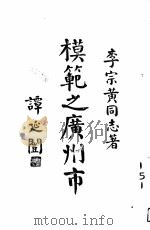 李宗黃同志著
模範之廣州市
譚延闓
151